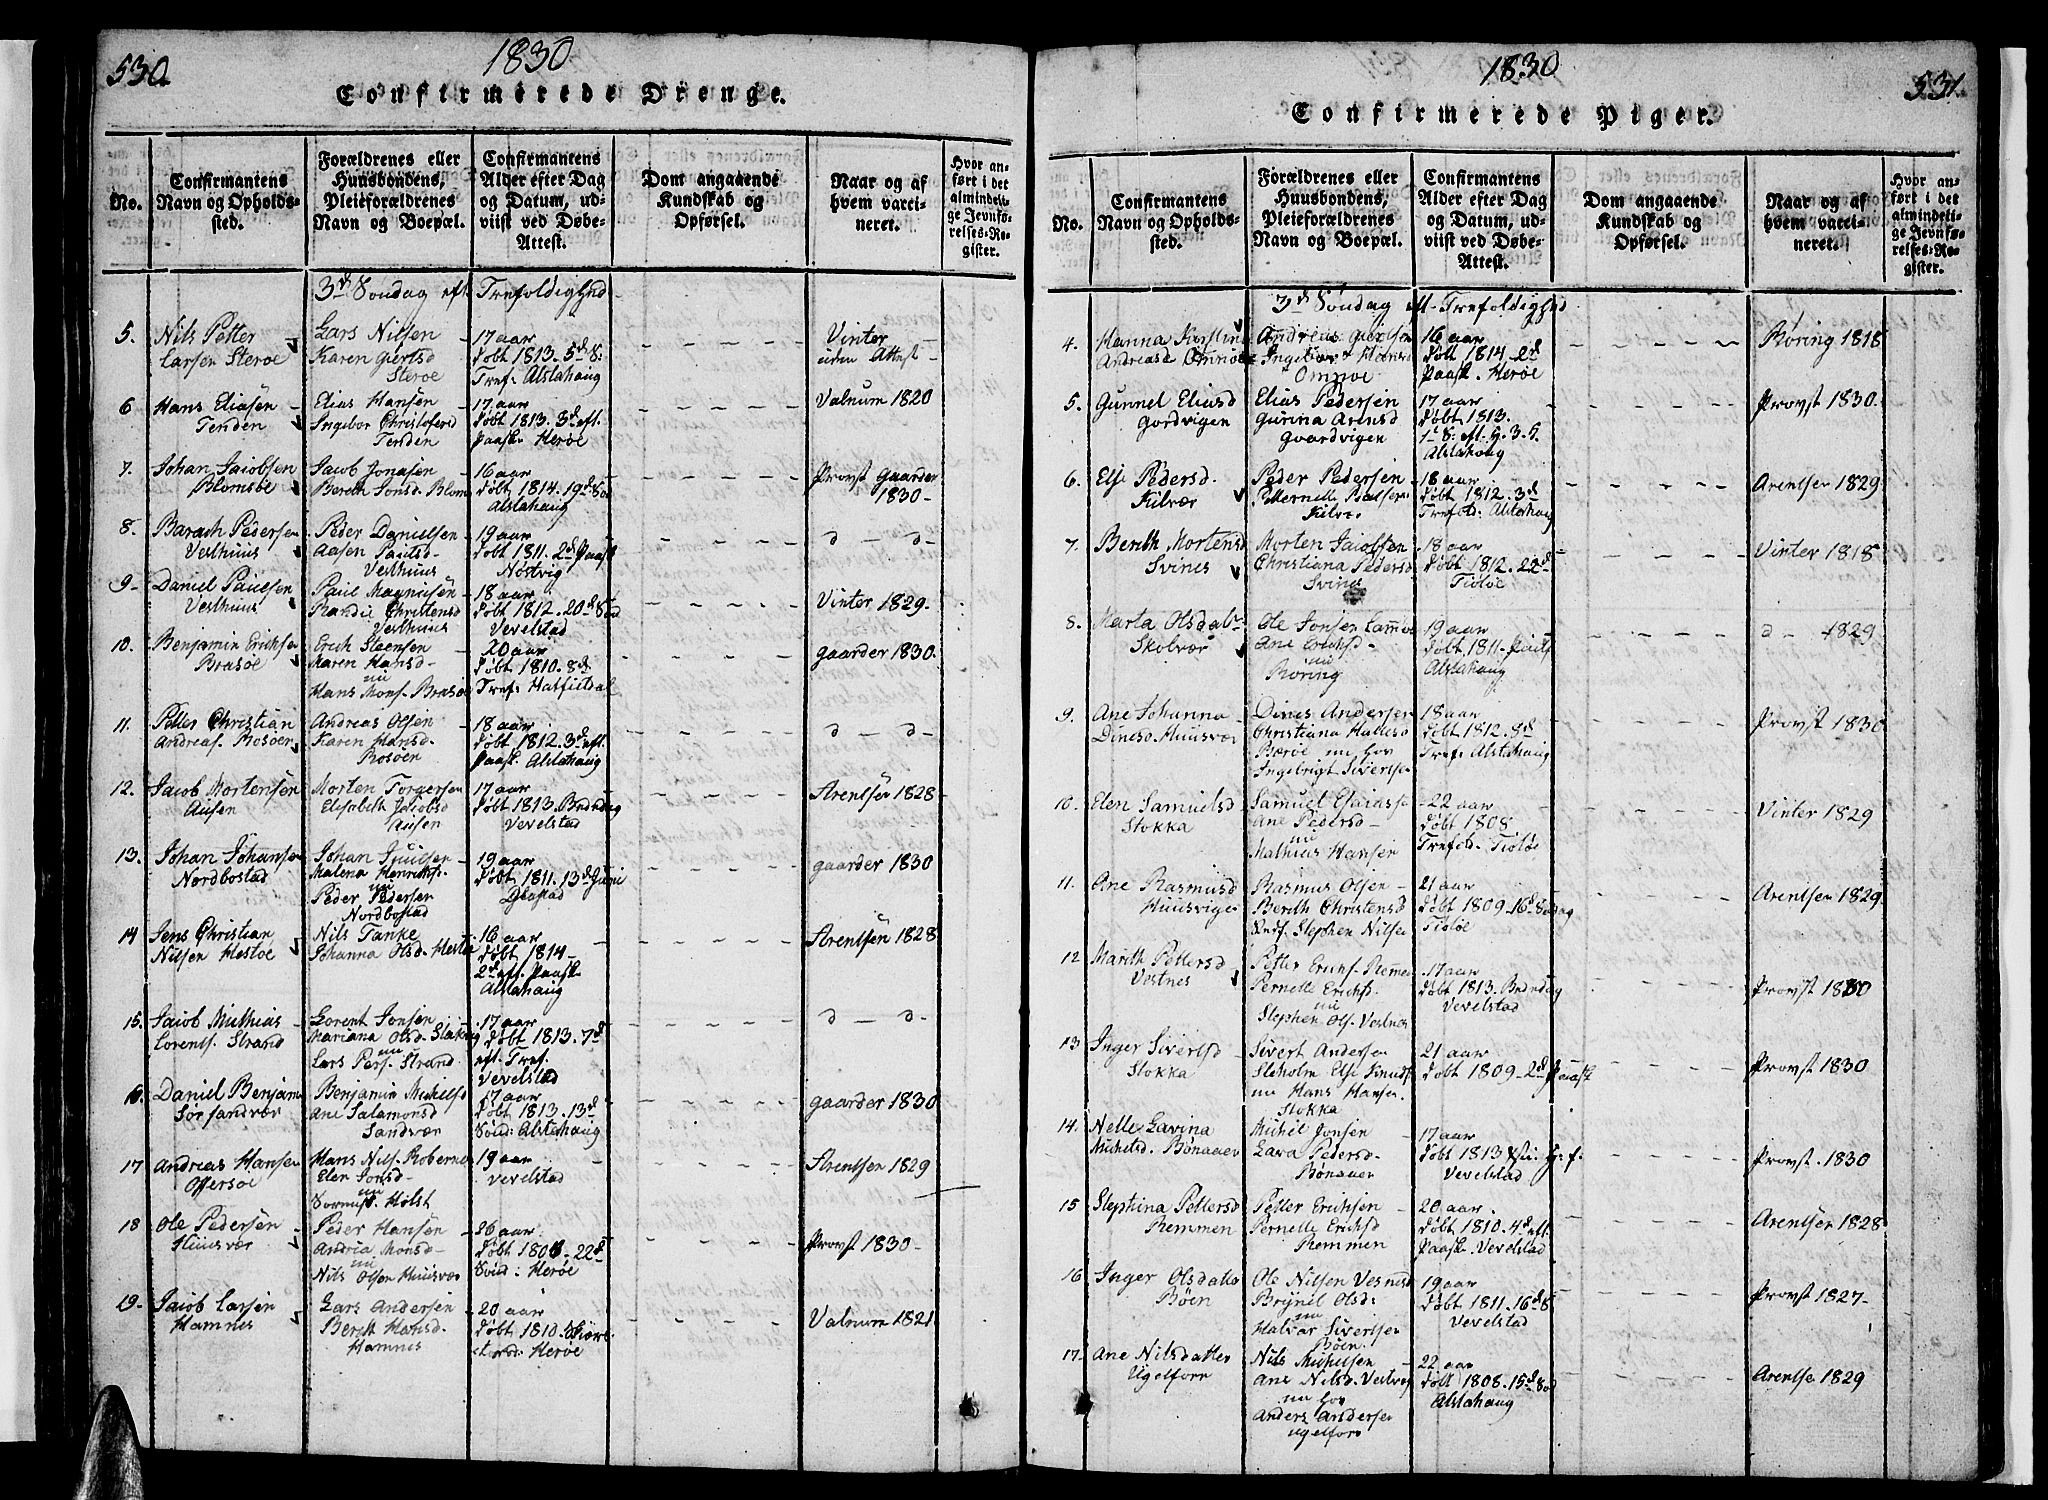 530.
1830
Confirmerede Drenge.
No.
Confirmantens Navn og Opholdssted.
Forældrenes eller Huusbondens, Pleieforældrenes Navn og Boepæl.
Confirmantens Alder efter Dag og Datum, udviist ved Døbe-Attest.
Dom angaaende Kundskab og Opførsel.
Naar og af hvem vaccineret.
Hvor anført i det almindelige Jevnførelses-Register.
3d Søndag eft. Trefoldighed
5. Nils Petter Larsen Sterøe
Lars Nilsen Karen Giertsd Sterøe
17 aar døbt 1813. 5d S. Tref: Alstahaug
Vinter uden Attest
6 Hans Eliasen Tenden
Elias Hansen Ingebor Christofersd Tenden
17 aar døbt 1813. 3d eft. Paask. Herøe
Valnum 1820
7. Johan Jacobsen Blomsøe
Jacob Jonasen Bereth Jonsd. Bloms
16 aar døbt 1814. 19d Sød Alstahaug
Provst Gaarder 1830
8. Barach Pedersen Vesthuus
Peder Danielsen Aasen Paulsd. Vesthuus
19 aar døbt 1811. 2d Paask Nøstvig
d - d
9 Daniel Paulsen Vesthuus
Paul Magnusen Randie Christensd Vesthuus
18 aar døbt 1812. 20d Sød Vevelstad
Vinter 1829.
10. Benjamin Erichsen Brasøe
Erich Steensen Karen Hansd. nu Hans Mons. Brasøe
20 aar døbt 1810. 8d Tref: Hatfieldal
gaarder 1830.
11. Petter Christian Andreas. Rosøen
Andreas Olsen Karen Hansd. Rosøen
18 aar døbt 1812. 3d eft. Paask. Alstahaug
d - d
12. Jacob Mortensen Ausen
Morten Torgersen Elisabeth Jacobsd Ausen
17 aar døbt 1813. Vevelstad
Arentsen 1828
13. Johan Johansen Nordbostad
Johan Malena Henrichs. nu Peder Pedersen Nordbostad
19 aar døbt 1811. 13d Juni
gaarder 1830
14 Jens Christian Nilsen Hestøe
Nils Tanke Johanna Olsd. Hestøe
16 aar døbt 1814 2d eft. Paask. Alstahaug
Arentsen 1828
15. Jacob Mathias Lorents. Strand
Lorent Jonsen Mariana Olsd. nu Lars Pers. Strand
17 aar døbt 1813. 7d eft. Tref. Vevelstad
d - d
16. Daniel Benjam Sør Sandvær
Benjamin Michelsd Ane Salamonsd Sandvær
17 aar døbt 1813. 13d Sønd: Alstahaug
gaarder 1830
17 Andreas Hansen Offersøe
Hans Nils. Elen Jonsd. nu Holst
19 aar Vevelstad
Arentsen 1829
18 Ole Pedersen Huusvær
Peder Hansen Andria Monsd. nu Nils Olsen Huusvær
26 aar 22d Sønd: Herøe
Provst 1830
19 Jacob Larsen Hamnes
Lars Andersen Bereth Hansd. Hamnes
20 aar døbt 1810. Herøe
Valnum 1821
1830
531.
Confirmerede Piger.
No.
Confirmantens Navn og Opholdssted.
Forældrenes eller Huusbondens, Pleieforældrenes Navn og Boepæl.
Confirmantens Alder efter Dag og Datum, udviist ved Døbe-Attest.
Dom angaaende Kundskab og Opførsel.
Naar og af hvem vaccineret.
Hvor anført i det almindelige Jevnførelses-Register.
3d Søndag eft. Trefoldighed
4. Hanna Karstine Andreasd Omnøe
Andreas Ingebor Hansd Omnøe
16 aar døbt 1814. 2d Paask. Herøe
Røring 1818
5. Gunnel Eliasd Gordvigen
Elias Pedersen Gunna Arensd Gaardvigen
17 aar døbt 1813. Alstahaug
Provst 1830.
6. Else Pedersd. Kilvær
Peder Pedersen Petternelle Kilvær
18 aar døbt 1812. 3d Trefold: Alstahaug
Arentsen 1829
7. Bereth Mortensd Svines
Morten Jacobsen Christiana Pedersd Svines
18 aar døbt 1812. 22d Tiøtøe
Vinter 1818
8. Marta Olsdatr Skolvær
Ole Jonsen Ane Erichsd. nu Røring
19 aar døbt 1811. Alstahaug
d - 1829
9. Ane Johanna Dinesd. Huusvær
Dines Andersen Christiana Bærøe nu hos Ingebrigt Sivertsen
18 aar døbt 1812. 8d Tref: Alstahaug
Provst 1830
10. Elen Samuelsd Stokka
Samuel Ane Pedersd nu Mathias Hansen
22 aar døbt 1808 Trefold. Tiøtøe
Vinter 1829
11. Ane Rasmusd Huusvigen
Rasmus Olsen Bereth Christensd Stephen Nilsen
21 aar døbt 1809. 16d Søndag Tiøtøe
Arentsen 1829
12 Mareth Pettersd Vestnes
Petter Erichs. Remmen Pernelle Erichsd. nu Stephen Ols. Vestnes
17 aar døbt 1813. Vevelstad
Provst 1830
13 Inger Sivertsd Stokka
Sivert Andersen Steholm Else Knuds nu Hans Hansen Stokka
21 aar døbt 1809. 2d Paask
Provst 1830
14. Nelle Lavina Michelsd. Bønaaen
Michel Jonsen Lava Pedersd. Bønaaen
17 aar døbt 1813 Vevelstad
Provst. 1830
15 Stephina Pettersd Remmen
Petter Erichsen Pernelle Erichsd Remmen
20 aar. døbt 1810. 4d eft. Paask. Vevelstad
Arentsen 1828
16 Inger Olsdatter Bøen
Ole Nilsen Brynel Olsd: nu Halvar Sivertsen Bøen
19 aar døbt 1811. 16d S. Vevelstad
Provst 1827
17 Ane Nilsdatter Ugelforn
Nils Michelsen Ane Nilsd. nu hos Anders Andersen Ugelforn
22 aar døbt 1808. 15d Sød Alstahaug
Arentsen 1829